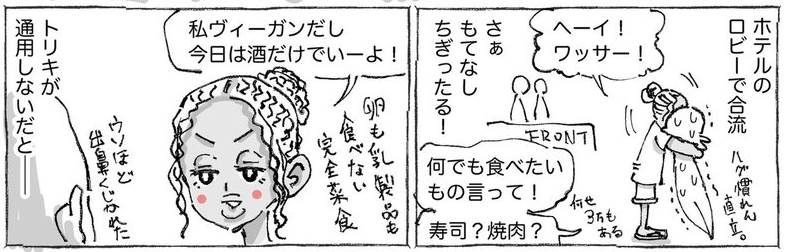 ホテルの
ロビーで合流
ヘーイ!
ワッサー!
ハグ慣れん
直立。
さぁ
もてなし
ちぎったる!
FRONT
何でも食べたい
もの言って!
寿司?焼肉?
何せ
3万も
ある
私ヴィーガンだし
今日は酒だけでいーよ!
卵も乳製品も
食べない
完全菜食
トリキが
通用しないだと――
ウソほど
出鼻くじかれた